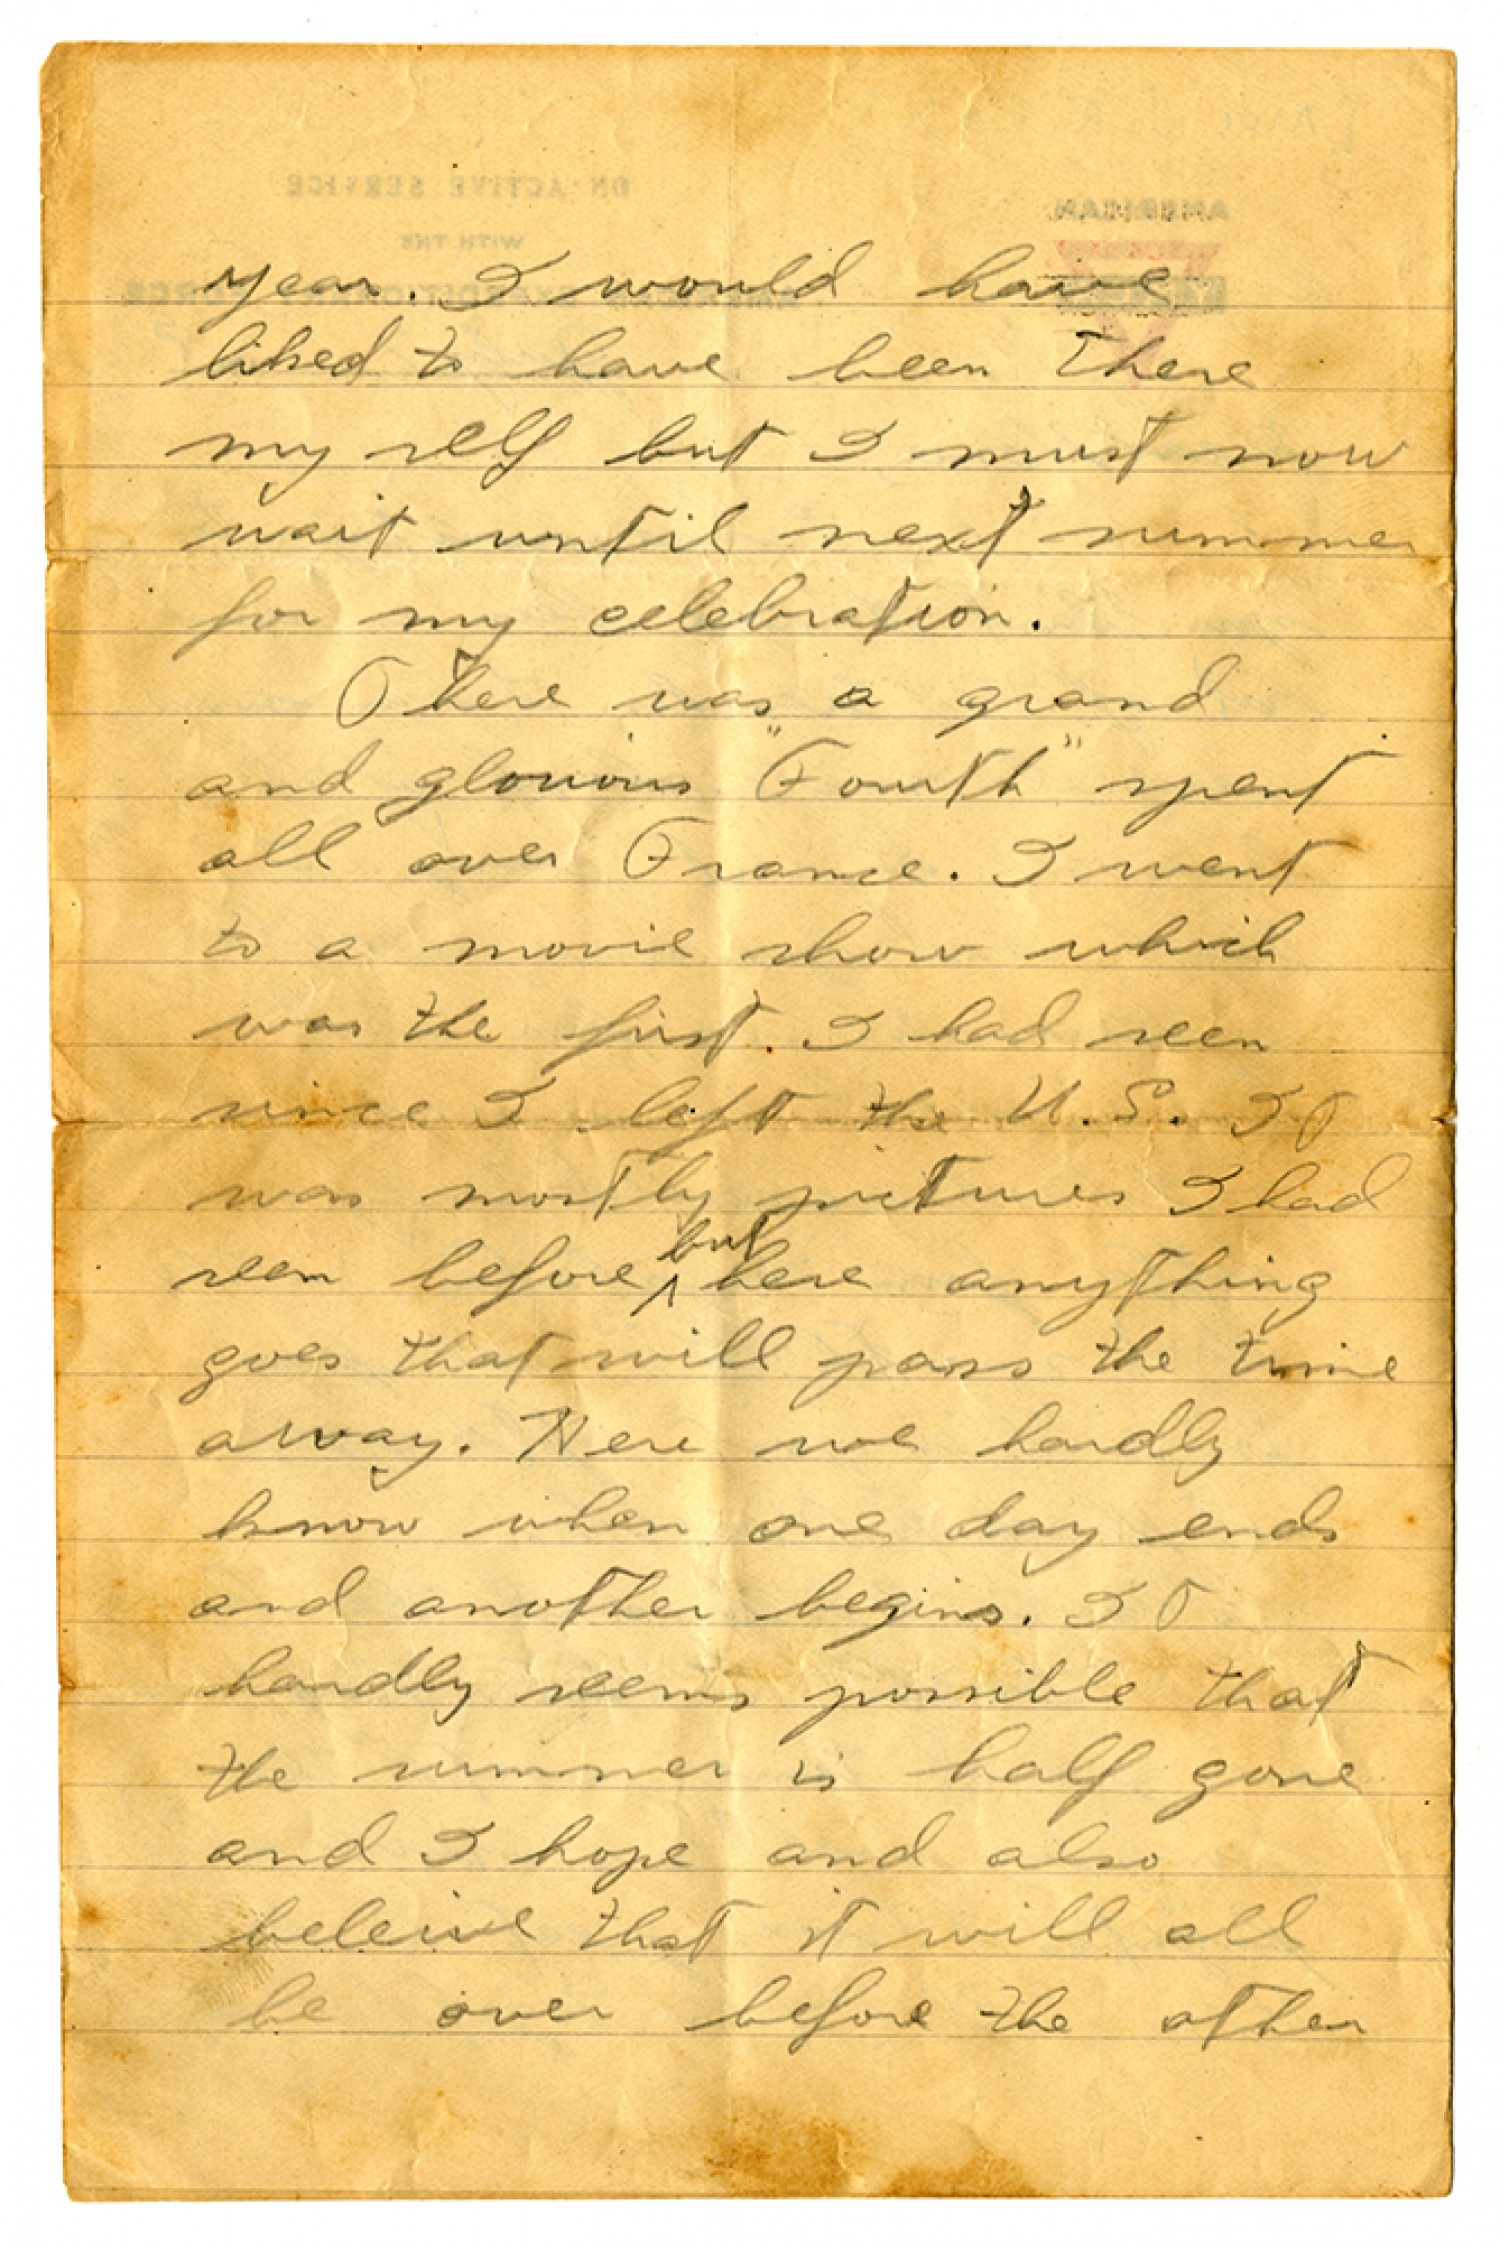 ON ACTIVE SERVICE
WITH THE
AMERICAN EXPEDITIONARY FORCE
AMERICAN
year. I would have
liked to have been there
my self but I must now
wait until next summer
for my celebration.
There was a grand
and glorious "Fourth" spent
all over France. I went
to a movie show which
was the first. I had seen
since I left the U.S. It
was mostly pictures I had
seen before but here anything
goes that will pass the time
away. Here we hardly
know when one day ends
and another begins. It
hardly seems possible that
the summer is half gone
and I hope and also
beleive that it will all
be over before the other